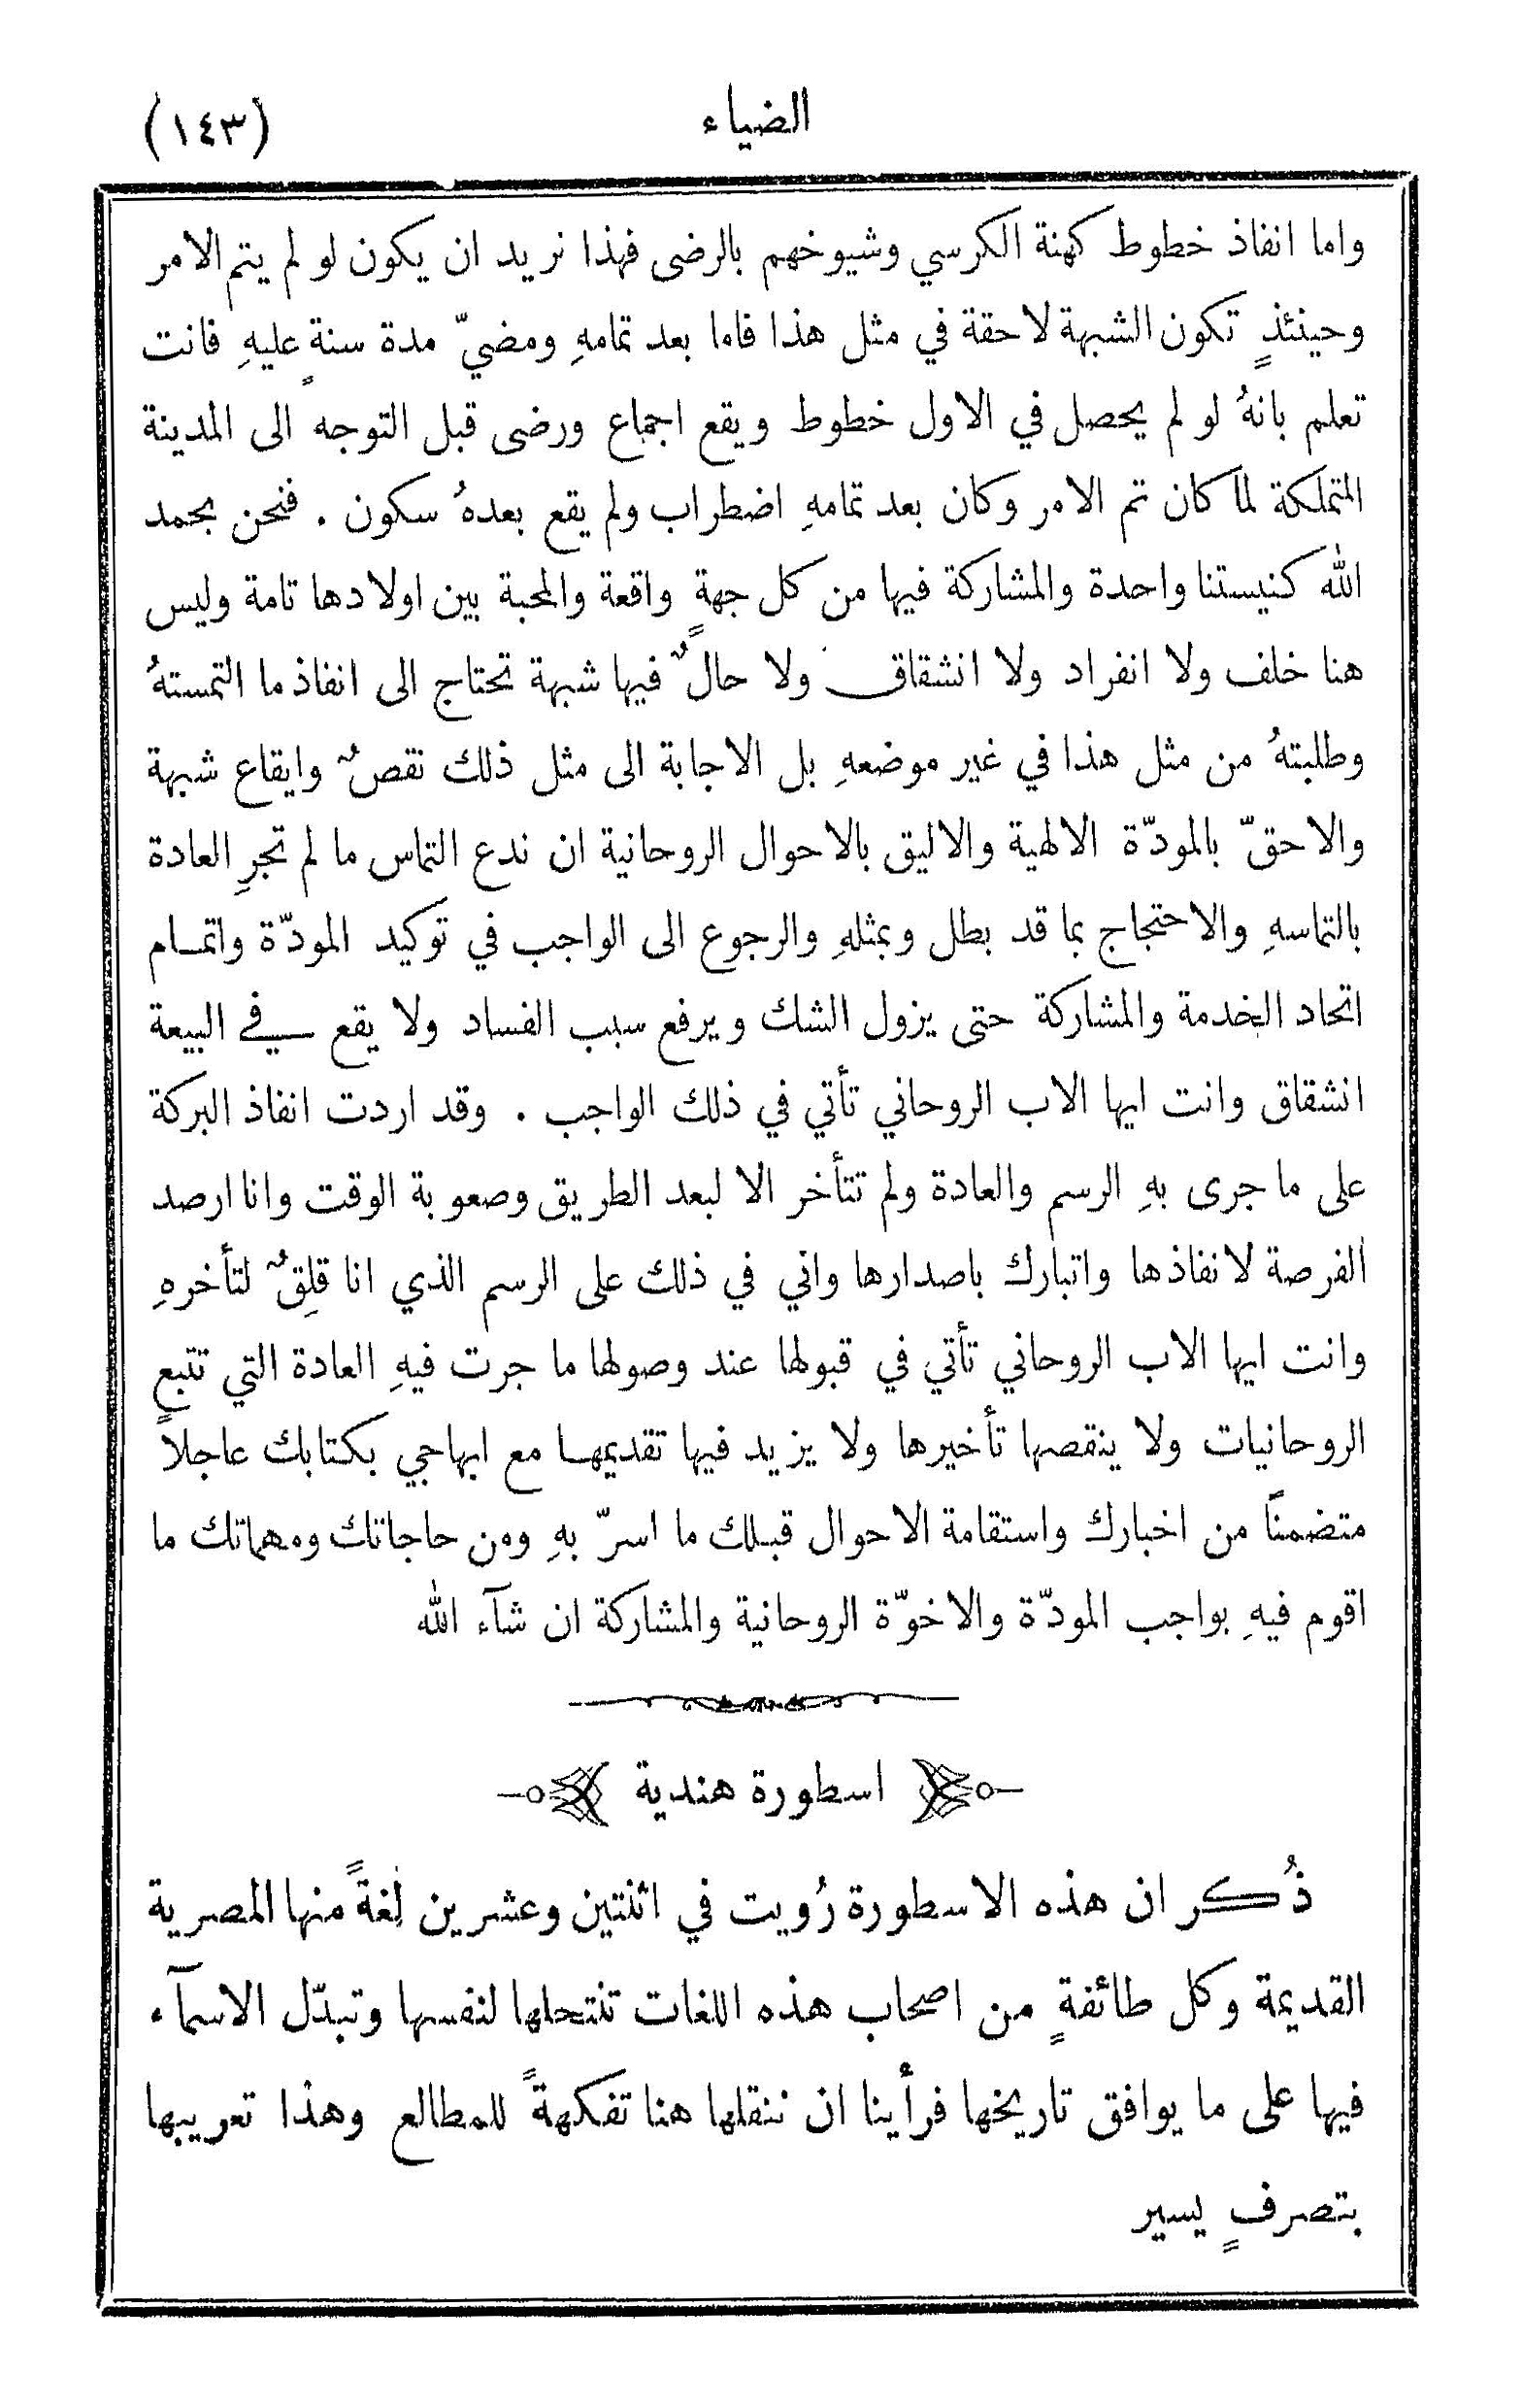 الضياء (١٤٣)
واما انفاذ خطوط كهنة الكرسي وشيوخهم بالرضى فهذا نريد ان يكون لو لم يتم الامر
وحينئذٍ تكون الشبهة لاحقة في مثل هذا فاما بعد تمامهِ ومضيّ مدة سنةٍ عليهِ فانت
تعلم بانهُ لو لم يحصل في الاول خطوط ويقع اجماع ورضى قبل التوجه الى المدينة
المتملكة لما كان تم الامر وكان بعد تمامهِ اضطراب ولم يقع بعدهُ سكون . فنحن بحمد
الله كنيستنا واحدة والمشاركة فيها من كل جهةٍ واقعة والمحبة بين اولادها تامة وليس
هنا خلف ولا انفراد ولا انشقاق ولا حالٌ فيها شبهة تحتاج الى انفاذ ما التمستهُ
وطلبتهُ من مثل هذا في غير موضعهِ بل الاجابة الى مثل ذلك نقصٌ وايقاع شبهة
والاحقّ بالمودّة الالهية والاليق بالاحوال الروحانية ان ندع التماس ما لم تجرِ العادة
بالتماسهِ والاحتجاج بما قد بطل وبمثلهِ والرجوع الى الواجب في توكيد المودّة واتمام
اتحاد الخدمة والمشاركة حتى يزول الشك ويرفع سبب الفساد ولا يقع في البيعة
انشقاق وانت ايها الاب الروحاني تأتي في ذلك الواجب . وقد اردت انفاذ البركة
على ما جرى بهِ الرسم والعادة ولم تتأخر الا لبعد الطريق وصعوبة الوقت وانا ارصد
الفرصة لانفاذها واتبارك باصدارها واني في ذلك على الرسم الذي انا قلِقٌ لتأخرهِ
وانت ايها الاب الروحاني تأتي في قبولها عند وصولها ما جرت فيهِ العادة التي تتبع
الروحانيات ولا ينقصها تأخيرها ولا يزيد فيها تقديمها مع ابهاجي بكتابك عاجلاً
متضمنًا من اخبارك واستقامة الاحوال قبلك ما اسرّ بهِ ومن حاجاتك ومهماتك ما
اقوم فيهِ بواجب المودّة والاخوّة الروحانية والمشاركة ان شآء الله
اسطورة هندية
ذُكر ان هذه الاسطورة رُويت في اثنتين وعشرين لغةً منها المصرية
القديمة وكل طائفةٍ من اصحاب هذه اللغات تنتحلها لنفسها وتبدّل الاسمآء
فيها على ما يوافق تاريخها فرأينا ان ننقلها هنا تفكهةً للمطالع وهذا تعريبها
بتصرفٍ يسير